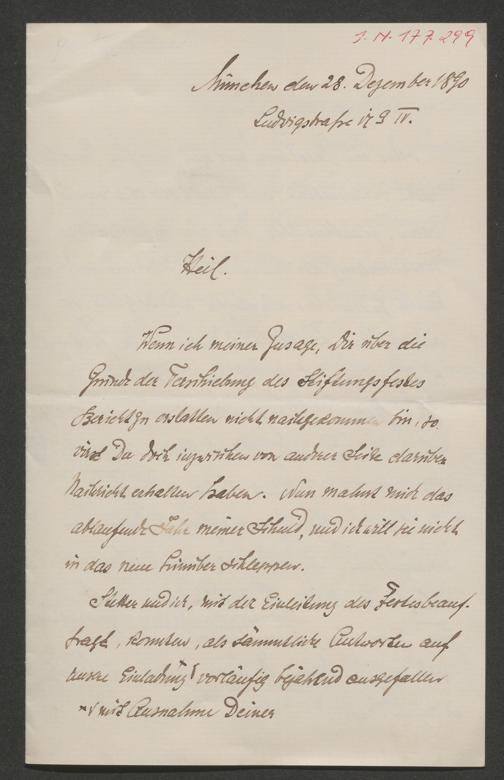 J. N. 177.299
München den 28. Dezember 1890
Ludwigstraße 17 g IV.
Heil.
Wenn ich meiner Zusage, Dir über die
Gründe der Verschiebung des Stiftungsfestes
Bericht zu erstatten nicht nachgekommen bin, so
wirst Du doch inzwischen von andrer Seite darüber
Nachricht erhalten haben. Nun mahnt mich das
ablaufende Jahr meiner Schuld, und ich will sie nicht
in das neue hinüber schleppen.
und ich, mit der Einleitung des Festes beauf-
tragt, konnten, als sämmtliche Antworten auf
unsre Einladung vorläufig bejahend ausgefallen
mit Ausnahme Deiner